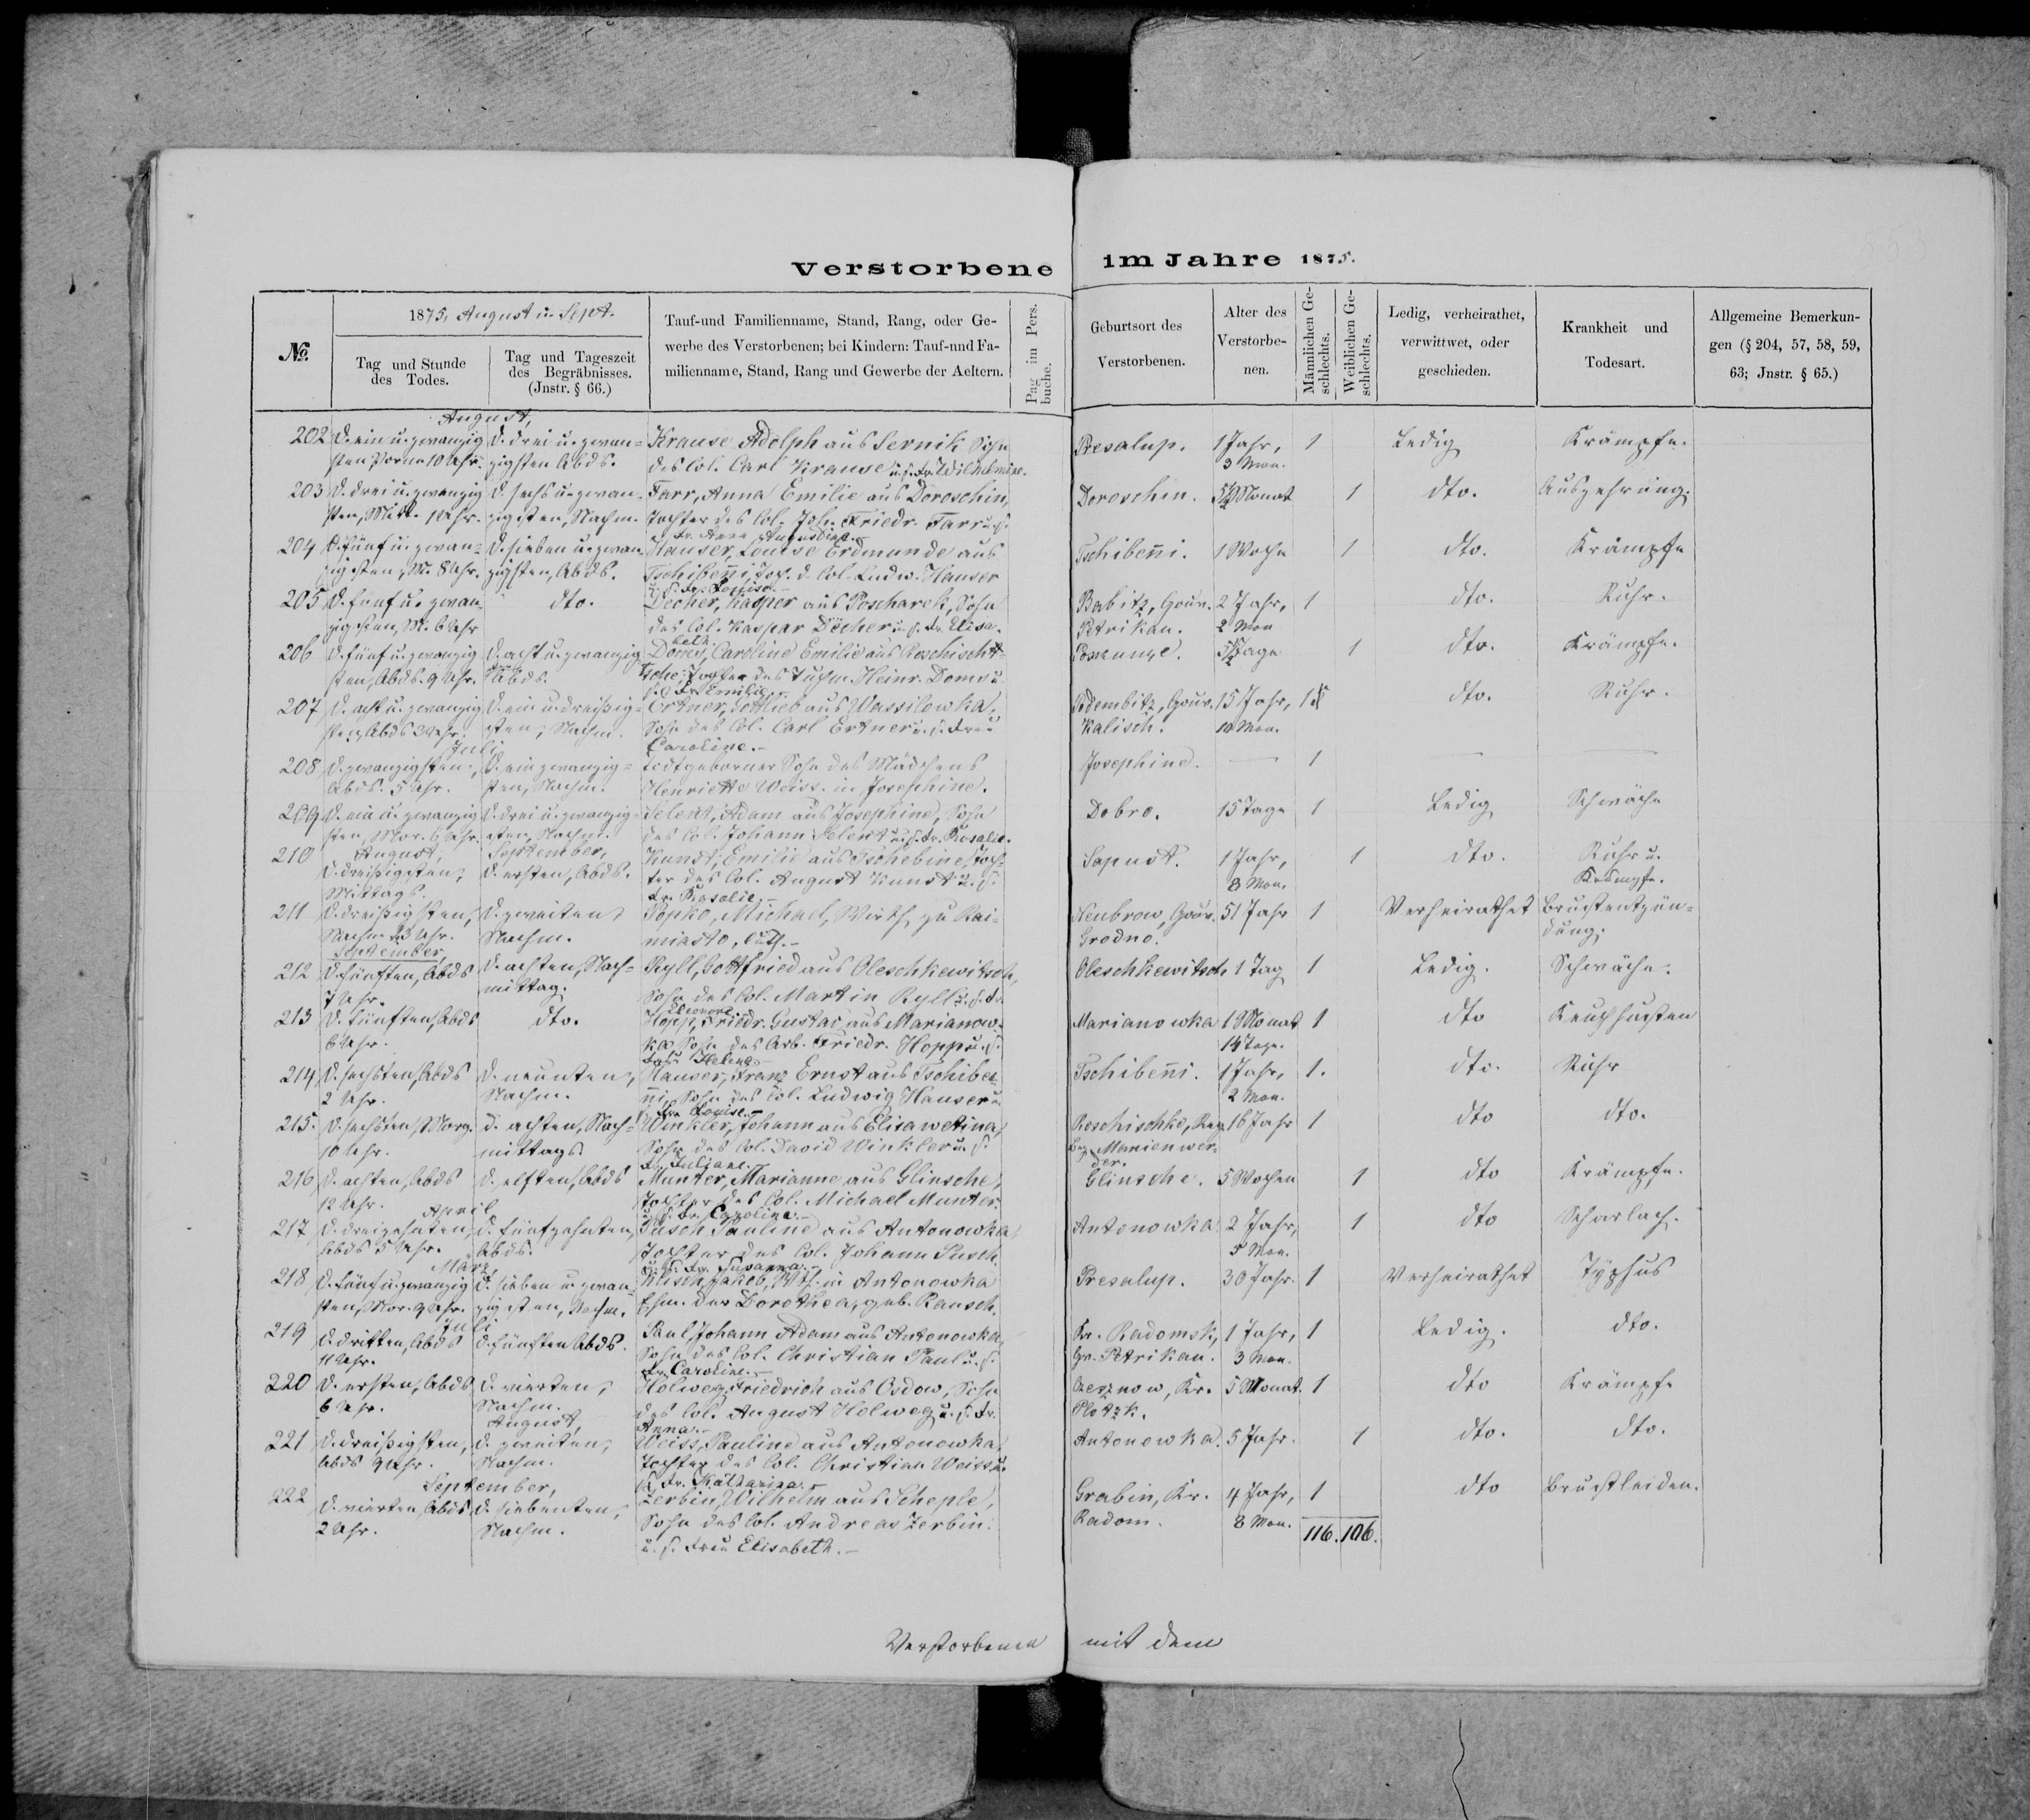 Verstorbene im Jahre 1875.
№.
1875, August u. Sept.
Tag und Stunde des Todes.
Tag und Tageszeit des Begräbnisses. (Jnstr. § 66.)
Tauf-und Familienname, Stand, Rang, oder Ge-
werbe des Verstorbenen; bei Kindern: Tauf-und Fa-
milienname, Stand, Rang und Gewerbe der Aeltern.
Pag im Pers. buche.
Geburtsort des Verstorbenen.
Alter des Verstorbe-nen.
Männlichen Ge-schlechts.
Weiblichen Ge-schlechts.
Ledig, verheirathet, verwittwet, oder geschieden.
Krankheit und Todesart.
Allgemeine Bemerkun-gen (§ 204, 57, 58, 59, 63; Jnstr. § 65.)
August,
202 D. ein u. zwanzig D. drei u. zwan= Krause Adolph aus Sernik Sohn Presalup. 1 Jahr, 1 Ledig Krämpfe.
sten Vorm 10 Uhr. zigsten Abds. des Col. Carl Krause u. s. Fr. Wilhelmine. 3 Mon.
203 D. drei u. zwanzig D. sechs u. zwan- Farr, Anna Emilie aus Doroschin, Doroschin. 5½ Monat 1 dto. Auszehrung.
sten, Mitt. 1 Uhr. zigsten, Nachm. Tochter des Col. Joh. Friedr. Farr u. s.
Fr. Anna Augustine.
204 D. fünf u. zwan= D. sieben u. zwan- Hauser, Louise Erdmunde aus Tschibeñi. 1 Woche 1 dto. Krämpfe
zigsten, M. 8 Uhr. zigsten, Abds. Tschibeñi, Toch. d. Col. Ludw. Hauser
u. s. Fr. Louise.-
205 D. fünf u. zwan dto. Decher, Kasper aus Poscharek, Sohn Babitz, Gouv. 2 Jahr, 1 dto. Ruhr.
zigsten, M. 6 Uhr des Col. Kaspar Decher u. s. Fr. Elisa- Petrikau. 2 Mon
beth.
206 D. fünf u. zwanzig D. acht u. zwanzig Doms, Caroline Emilie aus Roschischt= 5½ Tage 1 dto. Krämpfe.
sten, Abds. 9 Uhr. Abds. tsche, Tochter des Tuchm. Heinr. Doms u.
s. Fr. Emilie.-
207 D. acht u. zwanzig D. ein u. dreißig= Ertner, Gottlieb aus Wassilewka, Gouv. 15 Jahr, 1 dto. Ruhr.
sten, Abds 3 Uhr. sten, Nachm. Sohn des Col. Carl Ertner u. s. Frau Kalisch. 10 Mon.
Juli Caroline.-
208 D. zwanzigsten, D. ein zwanzig= todtgeborner Sohn des Mädchens Josephine. — 1 — —
Abds. 5 Uhr. sten, Nachm. Henriette Weiss. in Josephine.
209 D. ein u. zwanzig D. drei u. zwanzig= Selent, Adam aus Josephine, Sohn Dobro. 15 Tage 1 Ledig Schwäche
sten, Mor. 6 Uhr. sten, Nachm. des Col. Johann Selent u. s. Fr. Rosalie.
210 August, September, Kunst, Emilie aus Tschebine, Toch- Sapust. 1 Jahr, 1 dto. Ruhr u.
D. dreißigsten, D. ersten, Abds. ter des Col. August Kunst u. s. 8 Mon. Krämpfe.
Mittags. Fr. Rosalie.-
211 D. dreißigsten, D. zweiten, Popko, Michael, Wirth zu Rai- Gouv. 51 Jahr 1 Verheirathet Brustentzün=
Nachm 3 Uhr. Nachm. miasto, luth.- Grodno. dung.
September,
212 D. fünften, Abds D. achten, Nach= Ryll, Gottfried aus Oleschkewitsch, Oleschkewitsch 1 Tag 1 Ledig. Schwäche.
7 Uhr. mittag. Sohn des Col. Martin Ryll u. s. Fr.
Eleonore.
213 D. fünften, Abds dto. Hopp, Friedr. Gustav aus Marianow- Marianowka 1 Monat 1 dto Keuchhusten
6 Uhr. ka Sohn des Arb. Friedr. Hopp u. s. 14 Tage.
Frau Helene.-
214 D. sechsten, Abds D. neunten, Hauser, Franz Ernst aus Tschibeñ Tschibeñi. 1 Jahr, 1. dto. Ruhr
2 Uhr. Nachm. ni, Sohn des Col. Ludwig Hauser u. 2 Mon.
s. Fr. Louise.-
215. D. sechsten, Morg. D. achten, Nach= Winkler, Johann aus Elisawetina, Roschischko, Reg 16 Jahr 1 dto dto.
10 Uhr. mittags. Sohn des Col. David Winkler u. s. bez. Marienwer-
Fr. Juliane. der.
216 D. achten, Abds D. elften, Abds Munter, Marianne aus Glinsche, Glinsche. 5 Wochen 1 dto Krämpfe.
12 Uhr. Tochter des Col. Michael Munter
April u. s. Fr. Caroline.-
217 D. dreizehnten, D. fünfzehnten, Pusch Pauline aus Antonowka, Antonowka 2 Jahr, 1 dto Scharlach.
Abds 5 Uhr. Abds. Tochter des Col. Johann Pusch 5 Mon.
März u. s. Fr. Susanna.-
218 D. fünf u. zwanzig D. sieben u. zwan= Klisch, Jakob, Wth. in Antonowka Presalup. 30 Jahr. 1 Verheirathet Typhus
sten, Mor. 9 Uhr. zigsten, Nachm. Ehm. der Dorothea, geb. Rausch.
Juli
219 D. dritten, Abds D. fünften Abds. Paul, Johann Adam aus Antonowka, Kr. Radomsk, 1 Jahr, 1 Ledig. dto.
11 Uhr. Sohn des Col. Christian Paul u. s. Gv. Petrikau. 3 Mon.
Fr. Caroline.-
220 D. ersten, Abds D. vierten, Holweg, Friedrich aus Osdow, Sohn Kr. 5 Monat. 1 dto Krämpfe
6 Uhr. Nachm. des Col. August Holweg u. s. Fr. Plotzk.
August, Anna.-
221 D. dreißigsten, D. zweiten, Weiss, Pauline aus Antonowka, Antonowka. 5 Jahr. 1 dto. dto.
Abds 9 Uhr. Nachm. Tochter des Col. Christian Weiss u.
September, s. Fr. Katharina.-
222 D. vierten Abds. D. siebenten, Zerbin, Wilhelm aus Scheple, Grabin, Kr. 4 Jahr, 1 dto Brustleiden.
2 Uhr. Nachm. Sohn des Col. Andreas Zerbin Radom. 8 Mon.
u. s. Frau Elisabeth.- 116. 106.
Verstorbenen mit dem